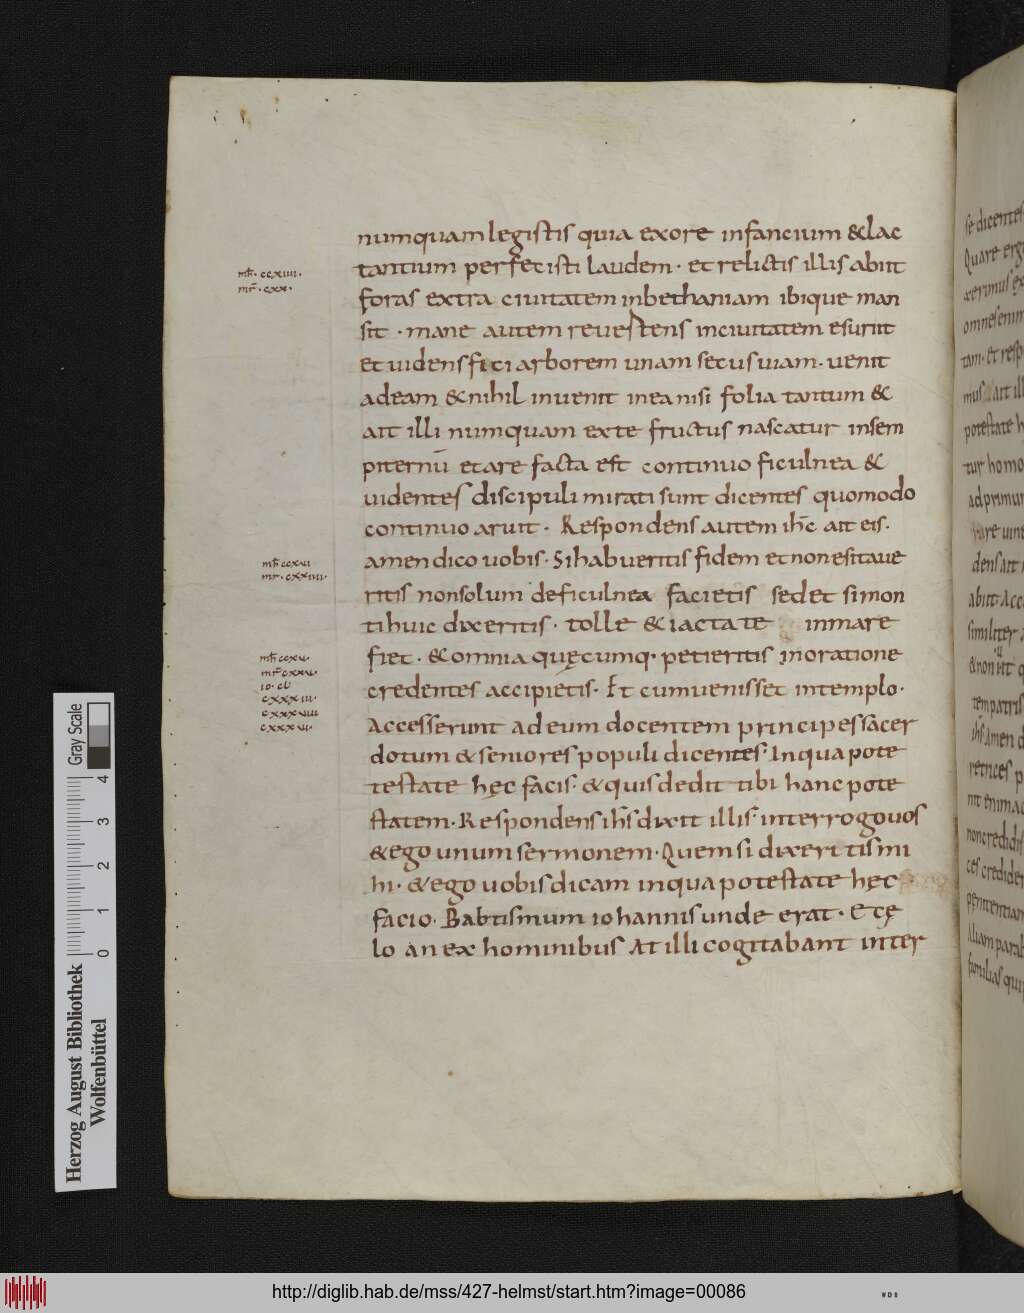 numquam legistis quia exore infancium & lac
tantium perfecisti laudem · et relictis illis abiit
mt̄ · ccxiiii ·
mr̄ · cxx ·
foras extra ciuitatem inbethaniam ibique man
sit · mane autem reuertens inciuitatem esuriit
et uidens fici arborem unam secus uiam · uenit
adeam & nihil inuenit inea nisi folia tantum &
ait illi numquam exte fructus nascatur insem
piternū et are facta est continuo ficulnea &
uidentes discipuli mirati sunt dicentes quomodo
continuo aruit · Respondens autem ih̄c ait eis ·
amen dico uobis · Si habueritis fidem et non esitaue
ritis non solum deficulnea facietis sed et si mon
ti huic dixeritis · tolle & iactate in mare
fiet · & omnia quęcumq · petieritis in oratione
credentes accipietis · Et cum uenisset in templo ·
cxxxiii ·
cxxxviiii
cxxxvi ·
Accesserunt ad eum docentem principes sacer
dotum & seniores populi dicentes · In qua pote
testate hęc facis · & quis dedit tibi hanc pote
statem · Respondens ih̄s dixit illis · interrogo uos
& ego unum sermonem · Quem si dixeritis mi
hi · & ego uobis dicam in qua potestate hęc
facio · Babtismum iohannis unde erat · E cę
lo an ex hominibus At illi cogitabant inter
se dicentes
Quare ergo
omnes enim
potestate
tur homo
dens ait
similiter
Amen d
non credidis
Herzog August Bibliothek
Wolfenbüttel
Gray Scale
0 1 2 3 4
http://diglib.hab.de/mss/427-helmst/start.htm?image=00086